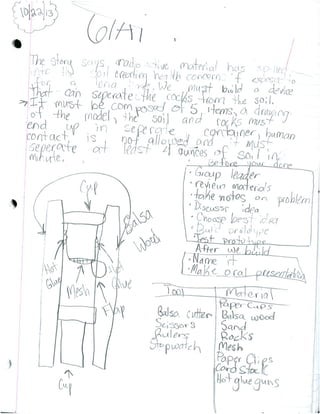 10/22/13
The Story says, radio active material has
soil creating health concern if
for a long time. We must build a device
that can seperate the rocks from the soil.
It must be composed of 5 items, a drawing
of the model, the soil and rocks must
end up in seperate container, human
contact, is not allowed and it must
seperate at least 4 ounces of soil in
minute.
Before your done
• Group leader
• review materials
• take notes on problem
• Discuss idea
• Choose best idea
• Build prototype
• Test prototype
After we build
• Name it
• Make oral presentation
Cup
Balsa
Wood
Hot
Glue
Hot
Glue
Mesh
Flap
Cup
Tool
Material
Balsa cutter
Scissors
Rulers
Stopwatch
Paper Cups
Balsa wood
Sand
Rocks
Mesh
Paper Clips
Card Stock
Hot glue guns